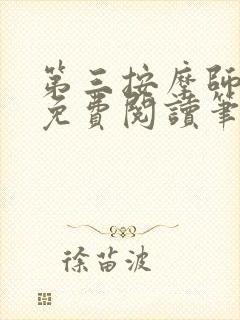 第三按摩師
免費閱讀筆
徐苗波